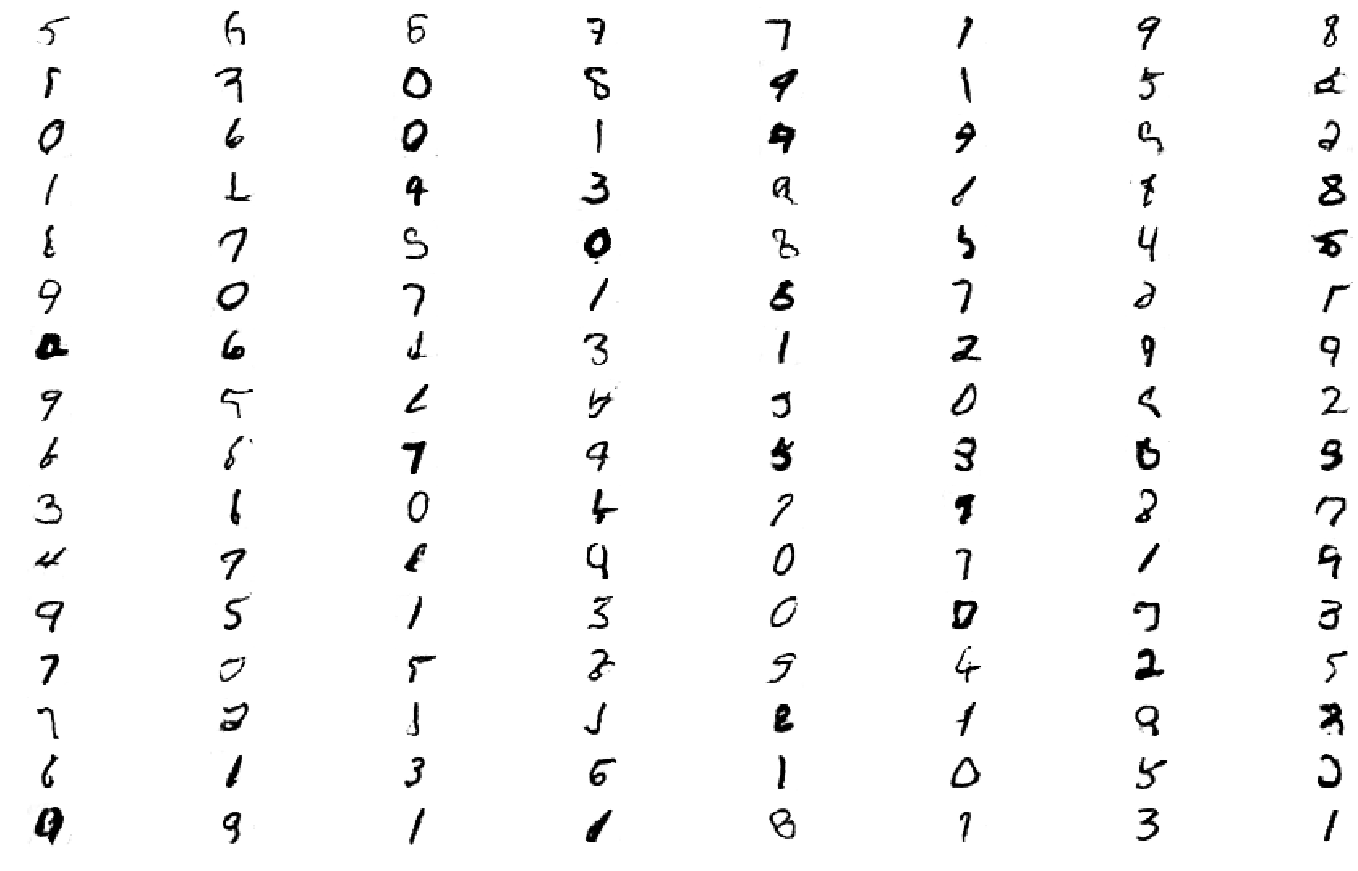 5 6 6 7 7 1 9 8
7 0 8 9 1 5 2
0 6 0 1 9 9 9 2
1 1 9 3 9 1 8
8 7 5 0 8 5 4 5
9 0 7 1 6 7 2
2 6 1 3 1 2 9 9
9 5 2 5 0 2
6 7 9 5 3 8 3
3 1 0 7 9 8 7
4 7 8 9 0 7 1 9
9 5 1 3 0 0 3
7 0 5 2 9 4 2 5
7 2 1 1 2 1 9 8
6 1 3 6 1 0 5
9 1 1 8 7 3 1